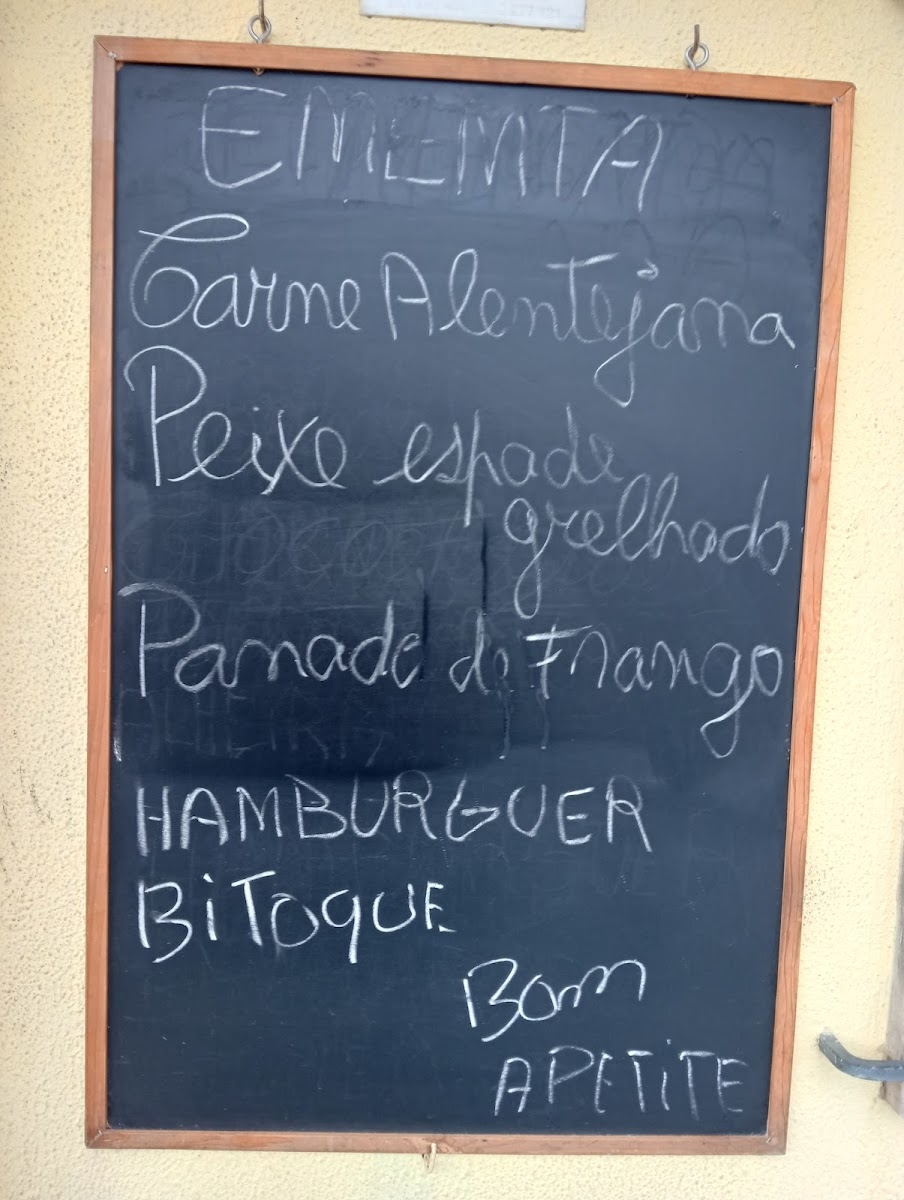 EMEMTA
Carne Alentejana
Peixe espade
grelhado
Panado de Frango
HAMBURGUER
BiToque
Bom
APETiTE